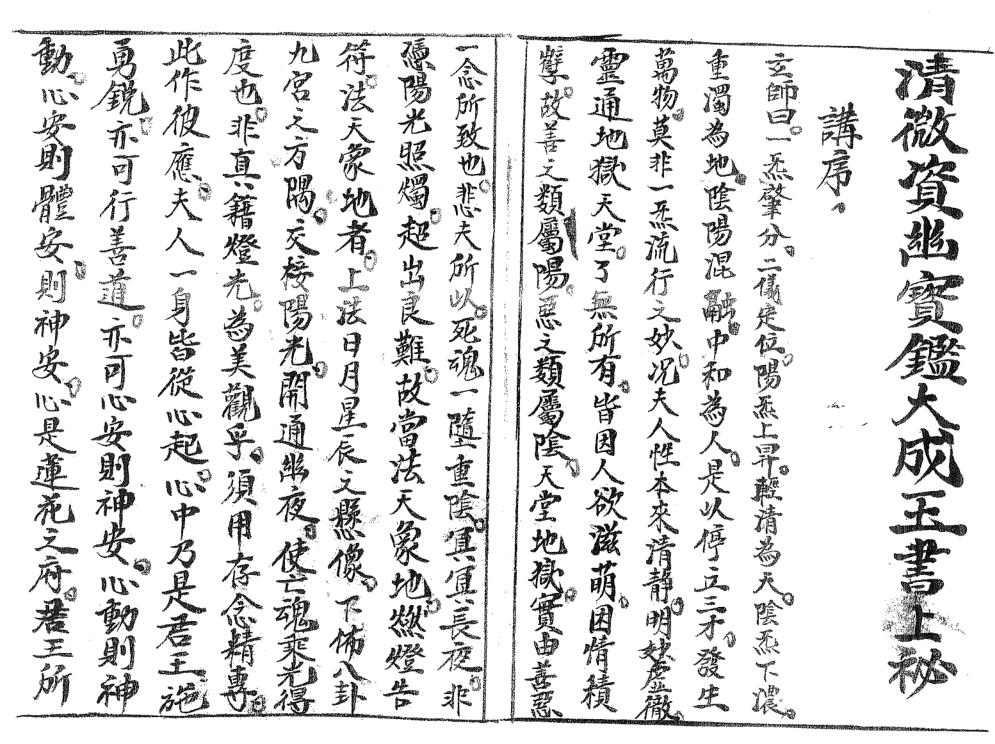 清微資幽寶鑑大成玉書上祕
講序
玄師曰一炁肇分二儀定位陽炁上昇輕清為天陰炁下濃
重濁為地陰陽混融中和為人是以停立三才發生
萬物莫非一炁流行之妙况夫人性本來清靜明妙虛徹
靈通地獄天堂了無所有皆因人欲滋萌困情積
孽故善之類屬陽惡之類屬陰天堂地獄實由善惡
一念所致也悲夫所以死魂一墮重陰冥冥長夜非
憑陽光照燭超出良難故當法天象地燃燈告
符法天象地者上法日月星辰之懸像下佈八卦
九宮之方隅交接陽光開通幽夜使亡魂乘光得
度也非真籍燈光為美觀乎須用存念精專
此作彼應夫人一身皆從心起心中乃是君王施
勇銳亦可行善道亦可心安則神安心動則神
動心安則體安則神安心是蓮花之府君王所